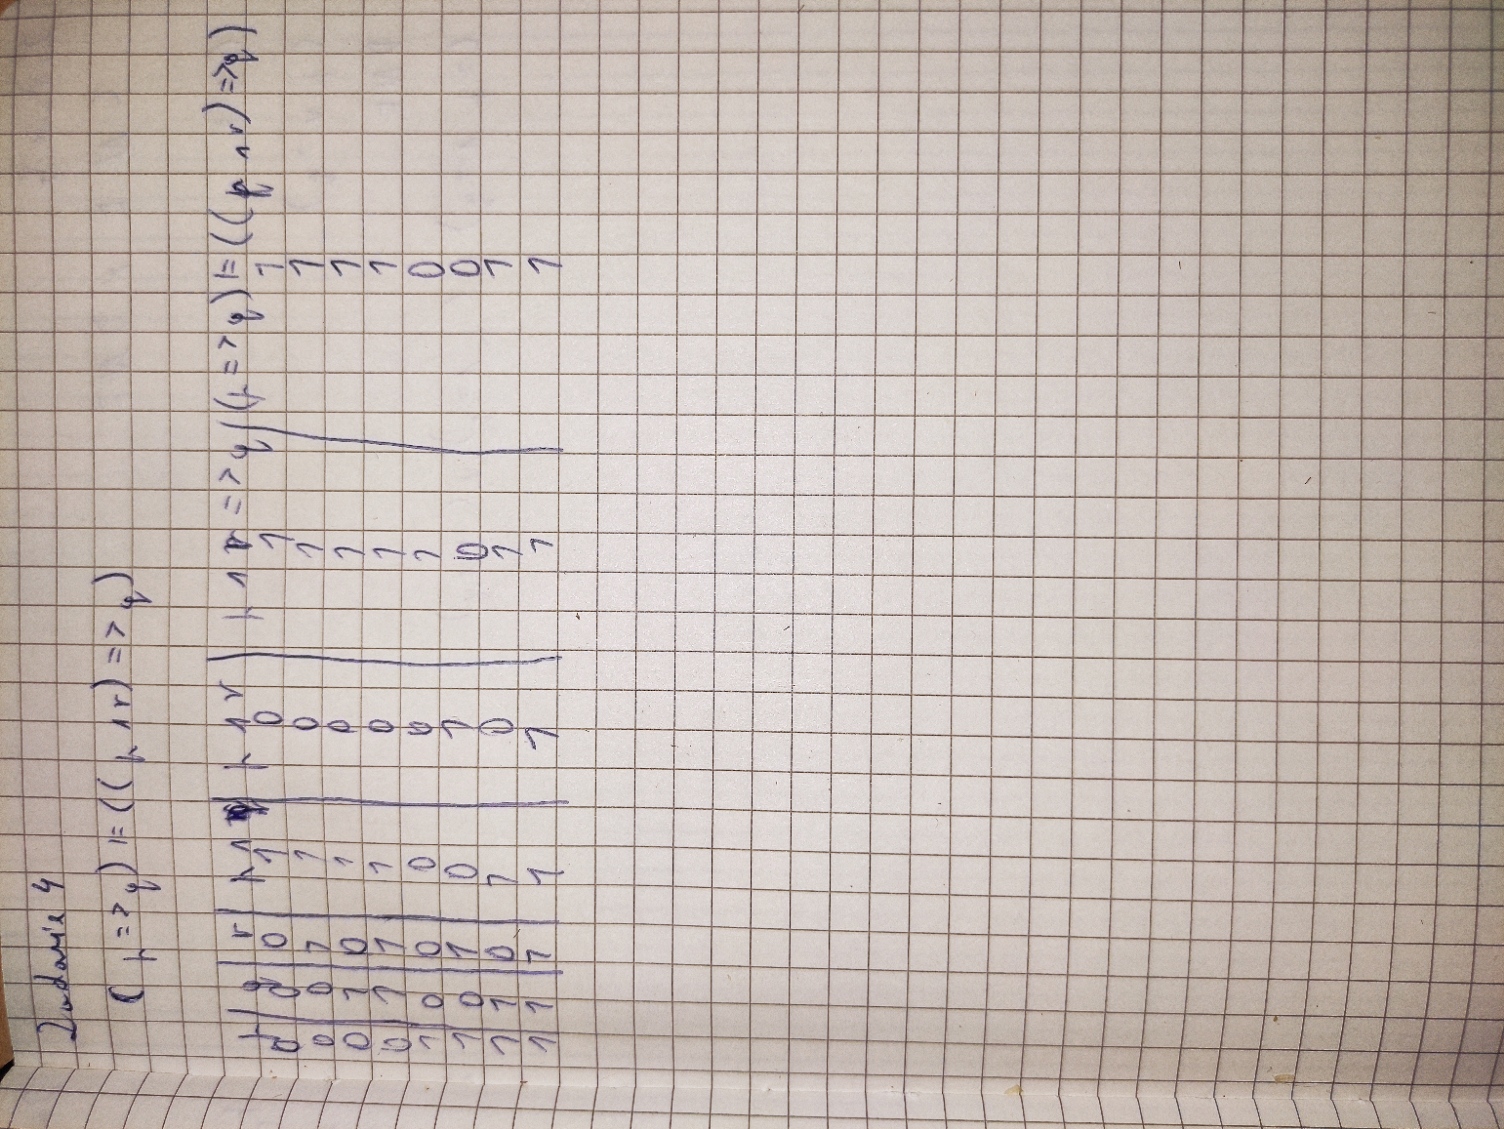 Zadanie 4
(p => q) |= ((p ∧ r) => q)
p | q | r | p ∧ q | p ∧ r | p ∧ r => q | (p => q) |= ((p ∧ r) => q)
0 | 0 | 0 | 1 | 0 | 1 | 1
0 | 0 | 1 | 1 | 0 | 1 | 1
0 | 1 | 0 | 1 | 0 | 1 | 1
0 | 1 | 1 | 1 | 0 | 1 | 1
1 | 0 | 0 | 0 | 0 | 1 | 0
1 | 0 | 1 | 0 | 1 | 0 | 0
1 | 1 | 0 | 1 | 0 | 1 | 1
1 | 1 | 1 | 1 | 1 | 1 | 1